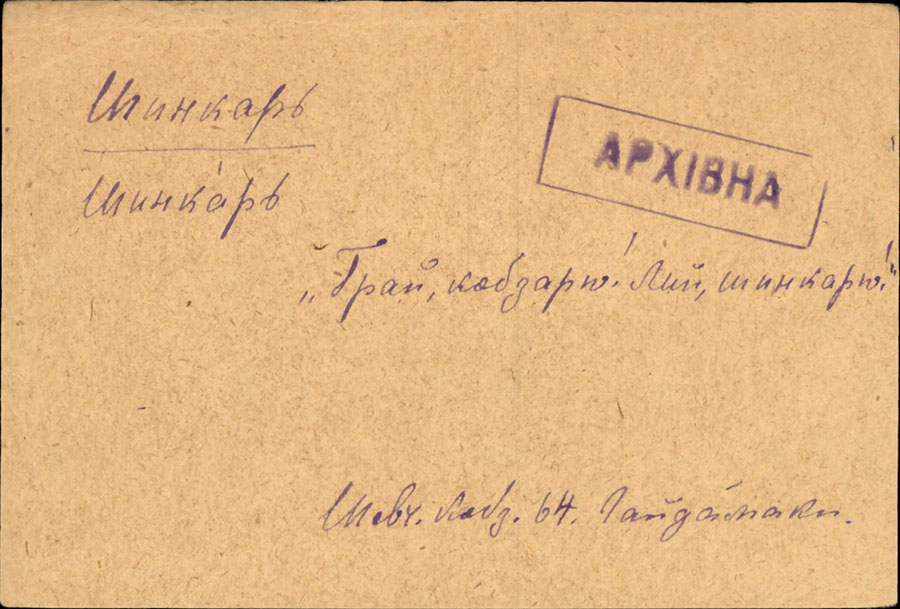 Шинкарь
АРХІВНА
Шинка́рь
„Грай, кобзарю! Лий, шинкарю!"
Шевч. Кобз. 64. Гайдамаки.